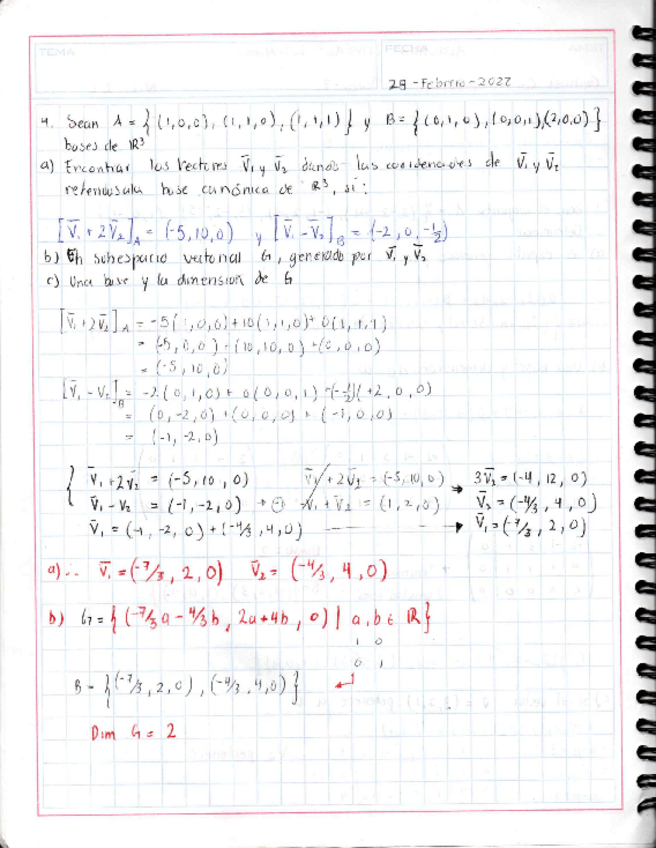 TEMA
FECHA
29-Febrero-2022
4. Sean A = { (1,0,0), (1,1,0), (1,1,1) } y B = { (0,1,0), (0,0,1), (2,0,0) }
bases de ℝ³
a) Encontrar los vectores V̄₁ y V̄₂ dando las coordenadas de V̄₁ y V̄₂
base canónica de ℝ³, si:
[V̄₁ + 2V̄₂]_A = (-5,10,0) y [V̄₁ - V̄₂]_B = (-2,0,-½)
b) subespacio vectorial G, generado por V̄₁ y V̄₂
c) Una base y la dimensión de G
[V̄₁ + 2V̄₂]_A = -5(1,0,0) + 10(1,1,0) + 0(1,1,1)
= (-5,0,0) + (10,10,0) + (0,0,0)
= (-5,10,0)
[V̄₁ - V₂]_B = -2(0,1,0) + 0(0,0,1) + (-½)(+2,0,0)
= (0,-2,0) + (0,0,0) + (-1,0,0)
= (-1,-2,0)
{ V̄₁ + 2V̄₂ = (-5,10,0) V̄₁ + 2V̄₂ = (-5,10,0) → 3V̄₂ = (-4,12,0)
V̄₁ - V₂ = (-1,-2,0) -V₁ + V̄₂ = (1,2,0) V̄₂ = (-4/3,4,0)
V̄₁ = (-1,-2,0) + (-4/3,4,0) → V̄₁ = (-7/3,2,0)
a) ∴ V̄₁ = (-7/3,2,0) V̄₂ = (-4/3,4,0)
b) G = { (-7/3a - 4/3b, 2a+4b, 0) | a,b ∈ ℝ }
1 0
0 1
B = { (-7/3,2,0), (-4/3,4,0) }
Dim G = 2